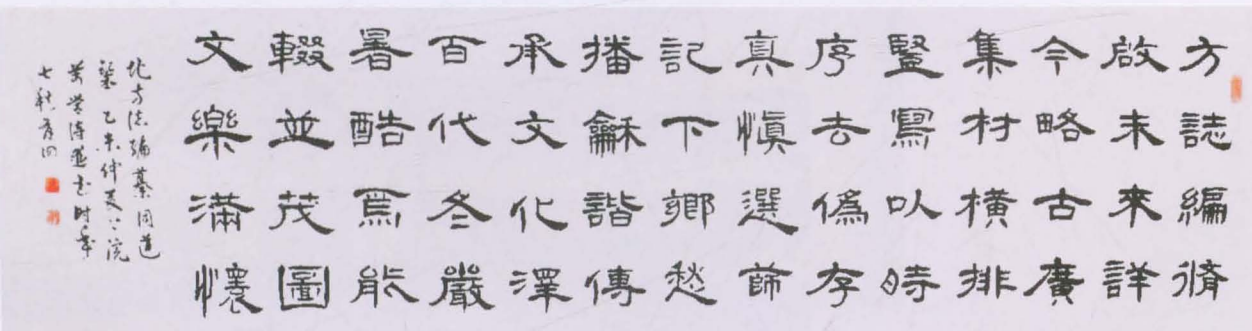 方誌編脩
啟未來詳
今略古廣
集材橫排
豎寫以時
序去偽存
真慎選篩
記下鄉愁
播龢諧傳
承文化澤
百代冬嚴
暑酷焉能
輟並茂圖
文樂滿懷
方誌編纂同道
乙未仲夏
書時年
七秩有四